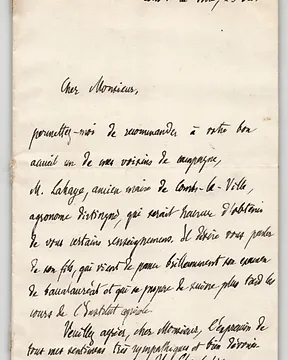 Cher Monsieur,
permettez-moi de recommander à votre bon
accueil un de mes voisins de campagne,
M. Lahaye, ancien maire de Combs-la-Ville,
agronome distingué, qui serait heureux d'obtenir
de vous certains renseignements. Il désire vous parler
de son fils, qui vient de passer brillamment son examen
de baccalauréat et qui se propose de suivre plus tard les
cours de l'Institut agricole.
Veuillez agréer, cher Monsieur, l'expression de
tous mes sentiments très sympathiques et bien dévoués